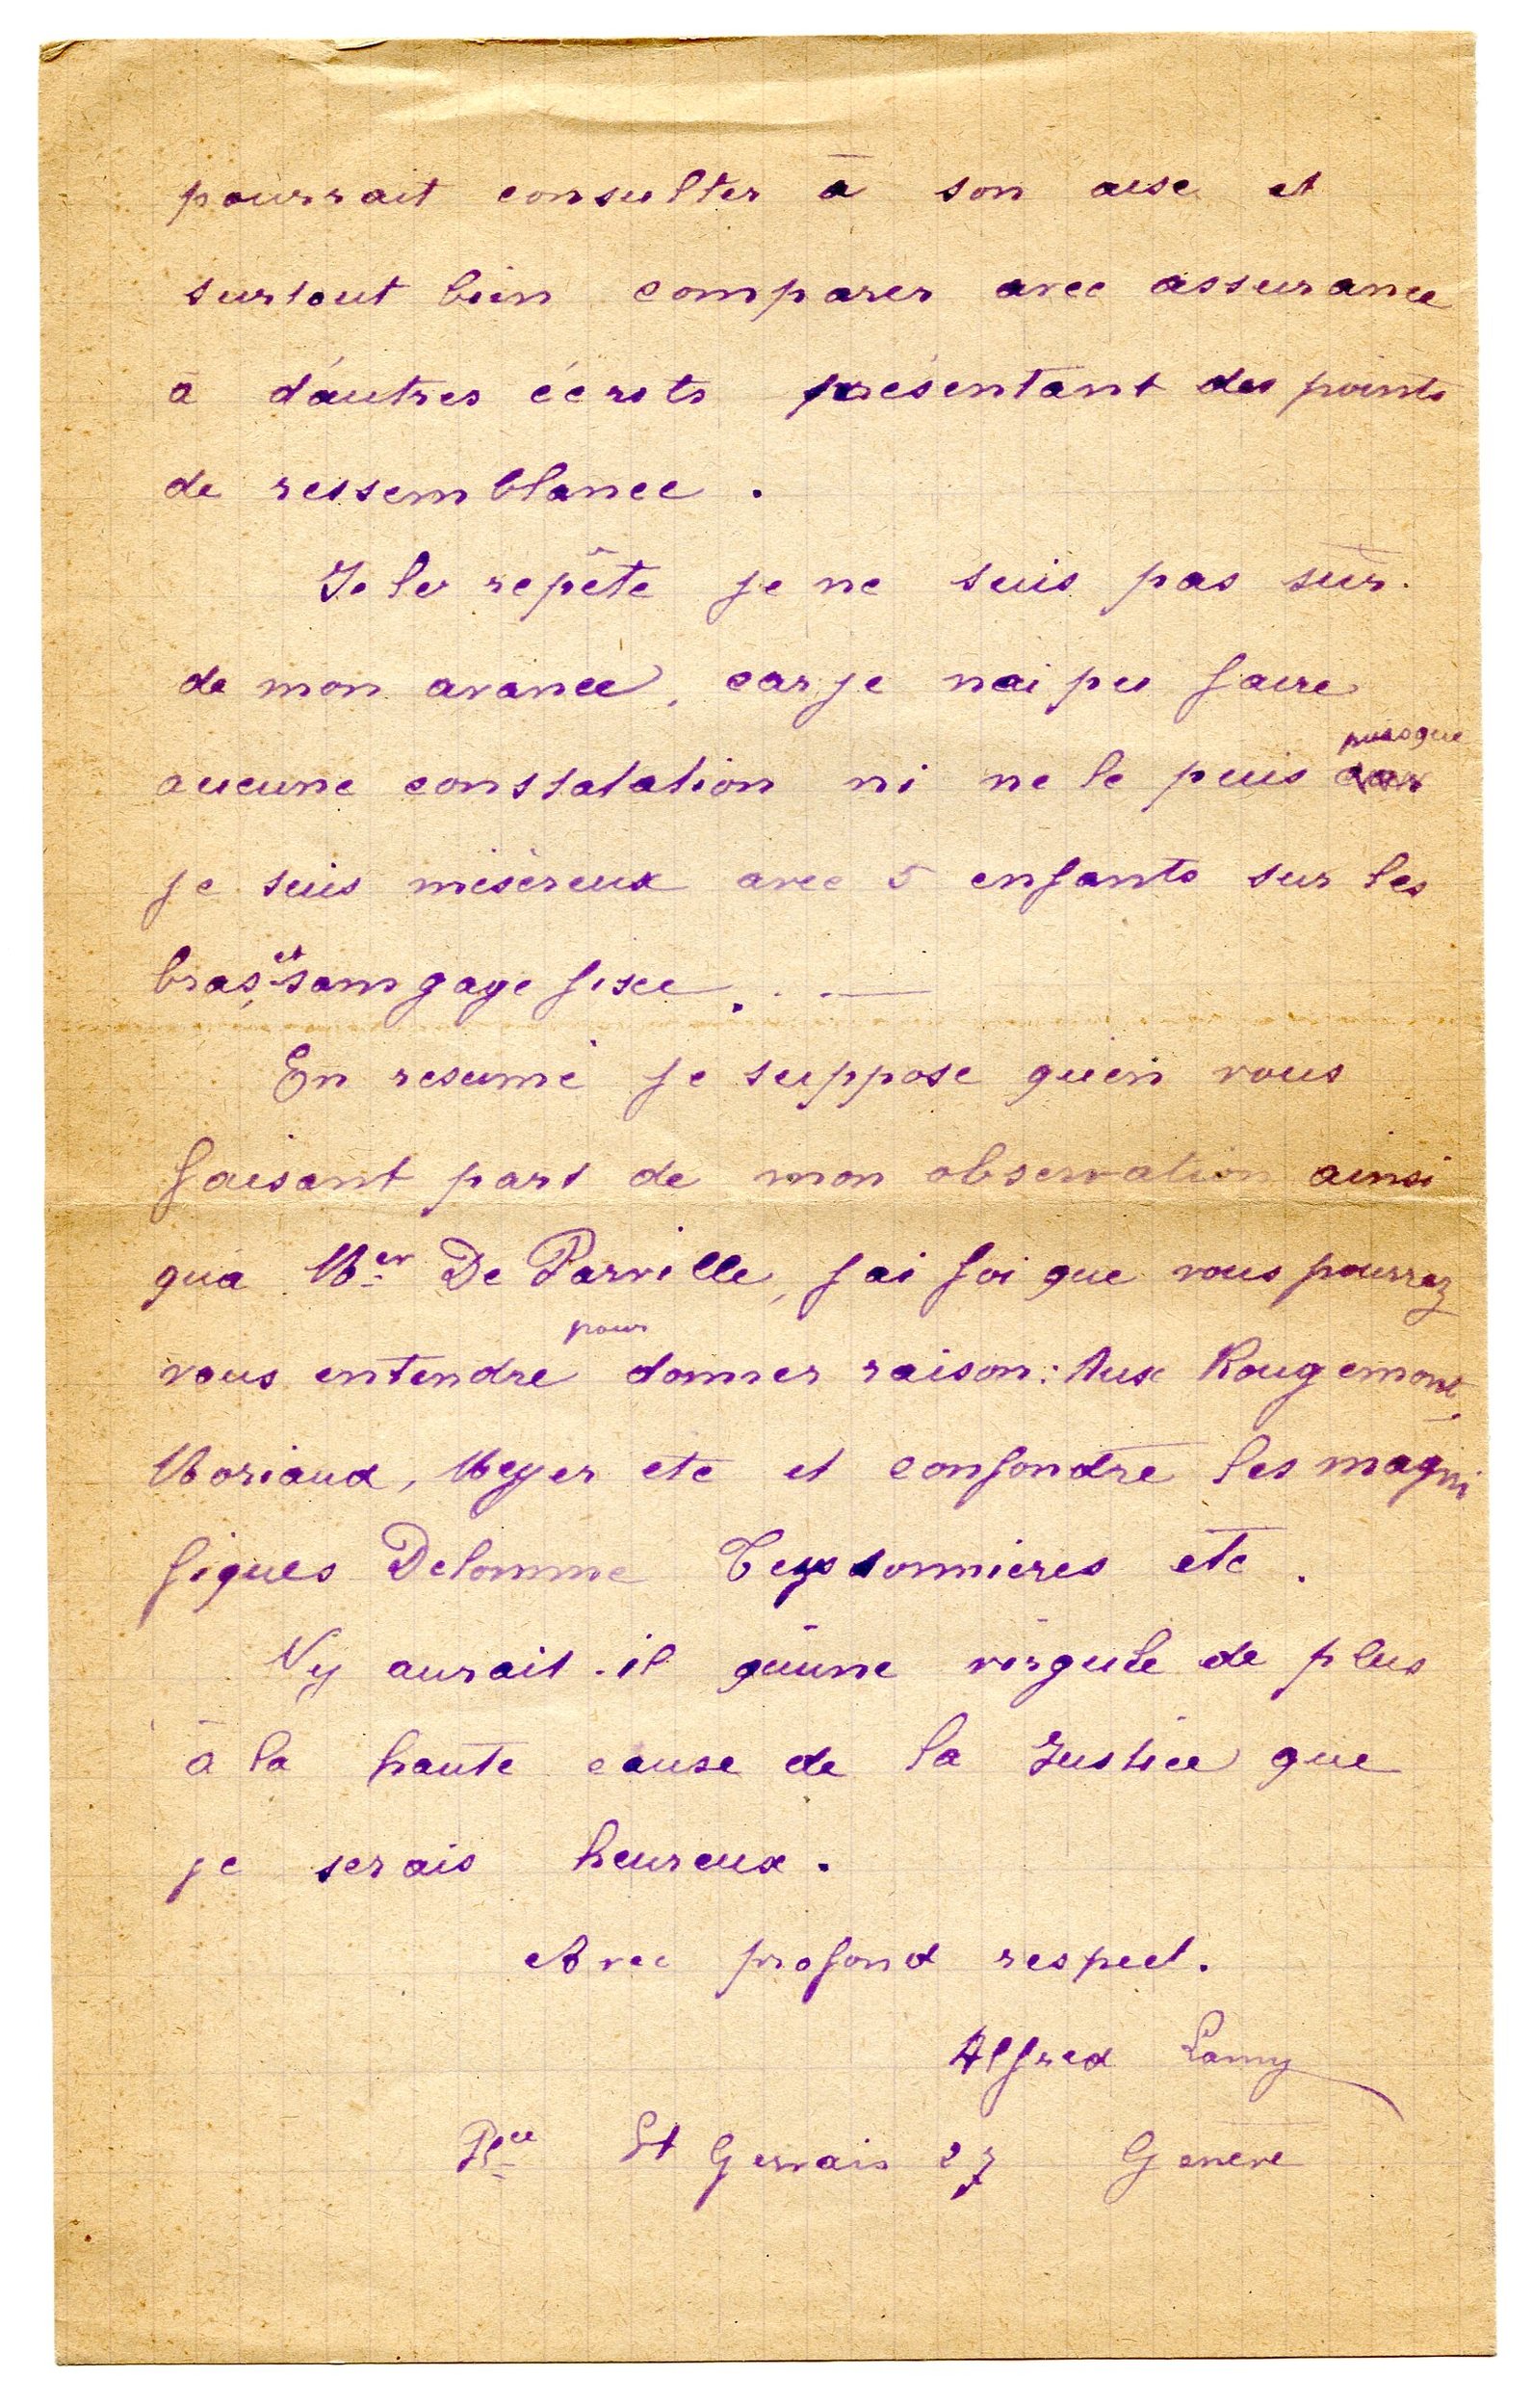 pourrait consulter à son aise et
surtout bien comparer avec assurance
à d'autres écrits présentant des points
de ressemblance.
Je le repête je ne suis pas sûr
de mon avance, car je n'ai pu faire
puisque
aucune constatation ni ne le puis car
je suis miséreux avec 5 enfants sur les
et
bras, sans gage fixe. . —
En resumé je suppose qu'en vous
faisant part de mon observation ainsi
qu'à Mer De Parville, j'ai foi que vous pourrez
pour
vous entendre donner raison: Aux Rougemont,
Moriaud, Meyer etc et confondre les magni
fiques Delomme Teyssonnieres etc.
N'y aurait-il qu'une virgule de plus
à la haute cause de la Justice que
je serais heureux.
Avec profond respect.
Alfred Lamy
Plce St Gervais 27 Genève